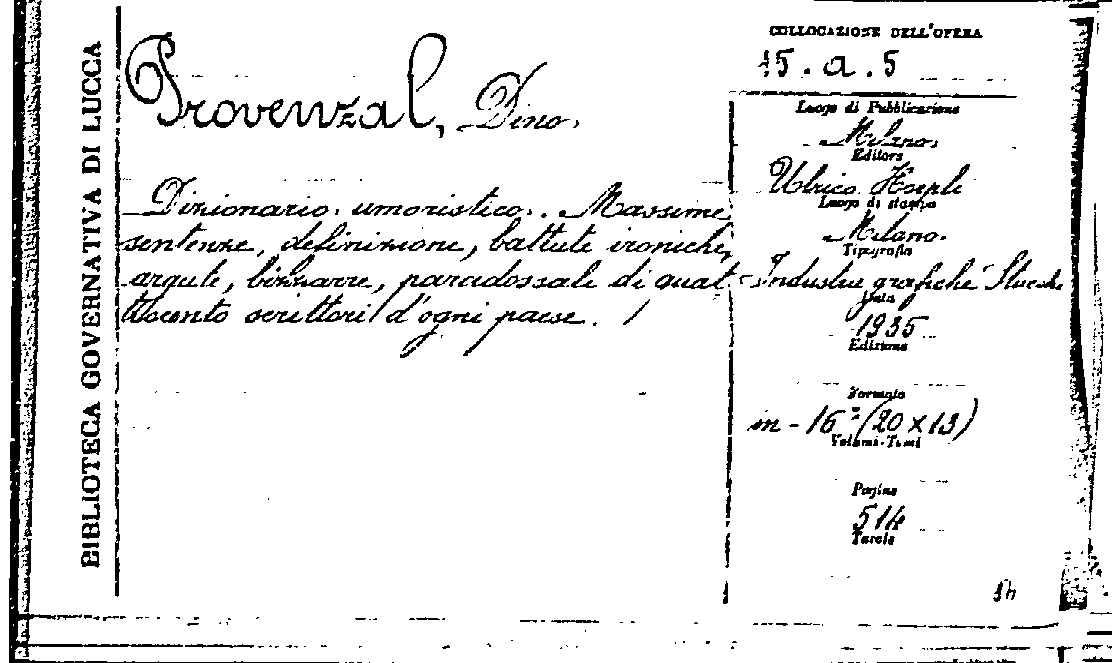 BIBLIOTECA GOVERNATIVA DI LUCCA
Provenzal, Dino.
Dizionario umoristico. Massime
sentenze, definizione, battute ironiche,
argute, bizzarre, paradossali di quat-
trocento scrittori d'ogni paese.
COLLOCAZIONE DELL'OPERA
15.a.5
Luogo di Pubblicazione
Milano.
Editore
Ulrico Hoepli
Luogo di stampa
Milano.
Tipografia
Industrie grafiche Stucchi
Data
1935
Edizione
Formato
in - 16° (20 x 13)
Volumi-Tomi
Pagine
514
Tavole